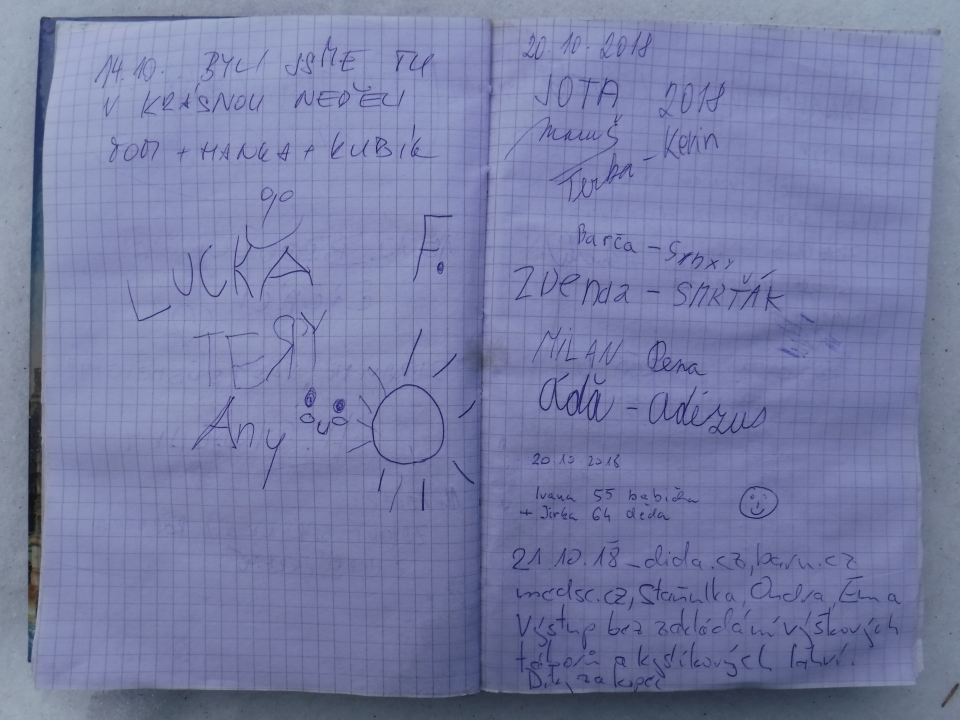 14.10. BYLI JSME TU
V KRÁSNOU NEDĚLI
TOM + HANKA + KUBÍK
LUCKA F.
TERY
Any
20.10.2018
JOTA 2018
Maruš
Terka - Kevin
Barča -
Zdenda - SMRŤÁK
MILAN Pena
Áďa - adézus
20.10 2018
Ivana 55 babička
+ Jirka 64 děda
21.10.18 - dida.cz, baru.cz
medsc.cz, Staňulka, Ondra, Ema
Výstup bez zakládání výškových
táborů a kyslíkových lahví.
Díky za kopec